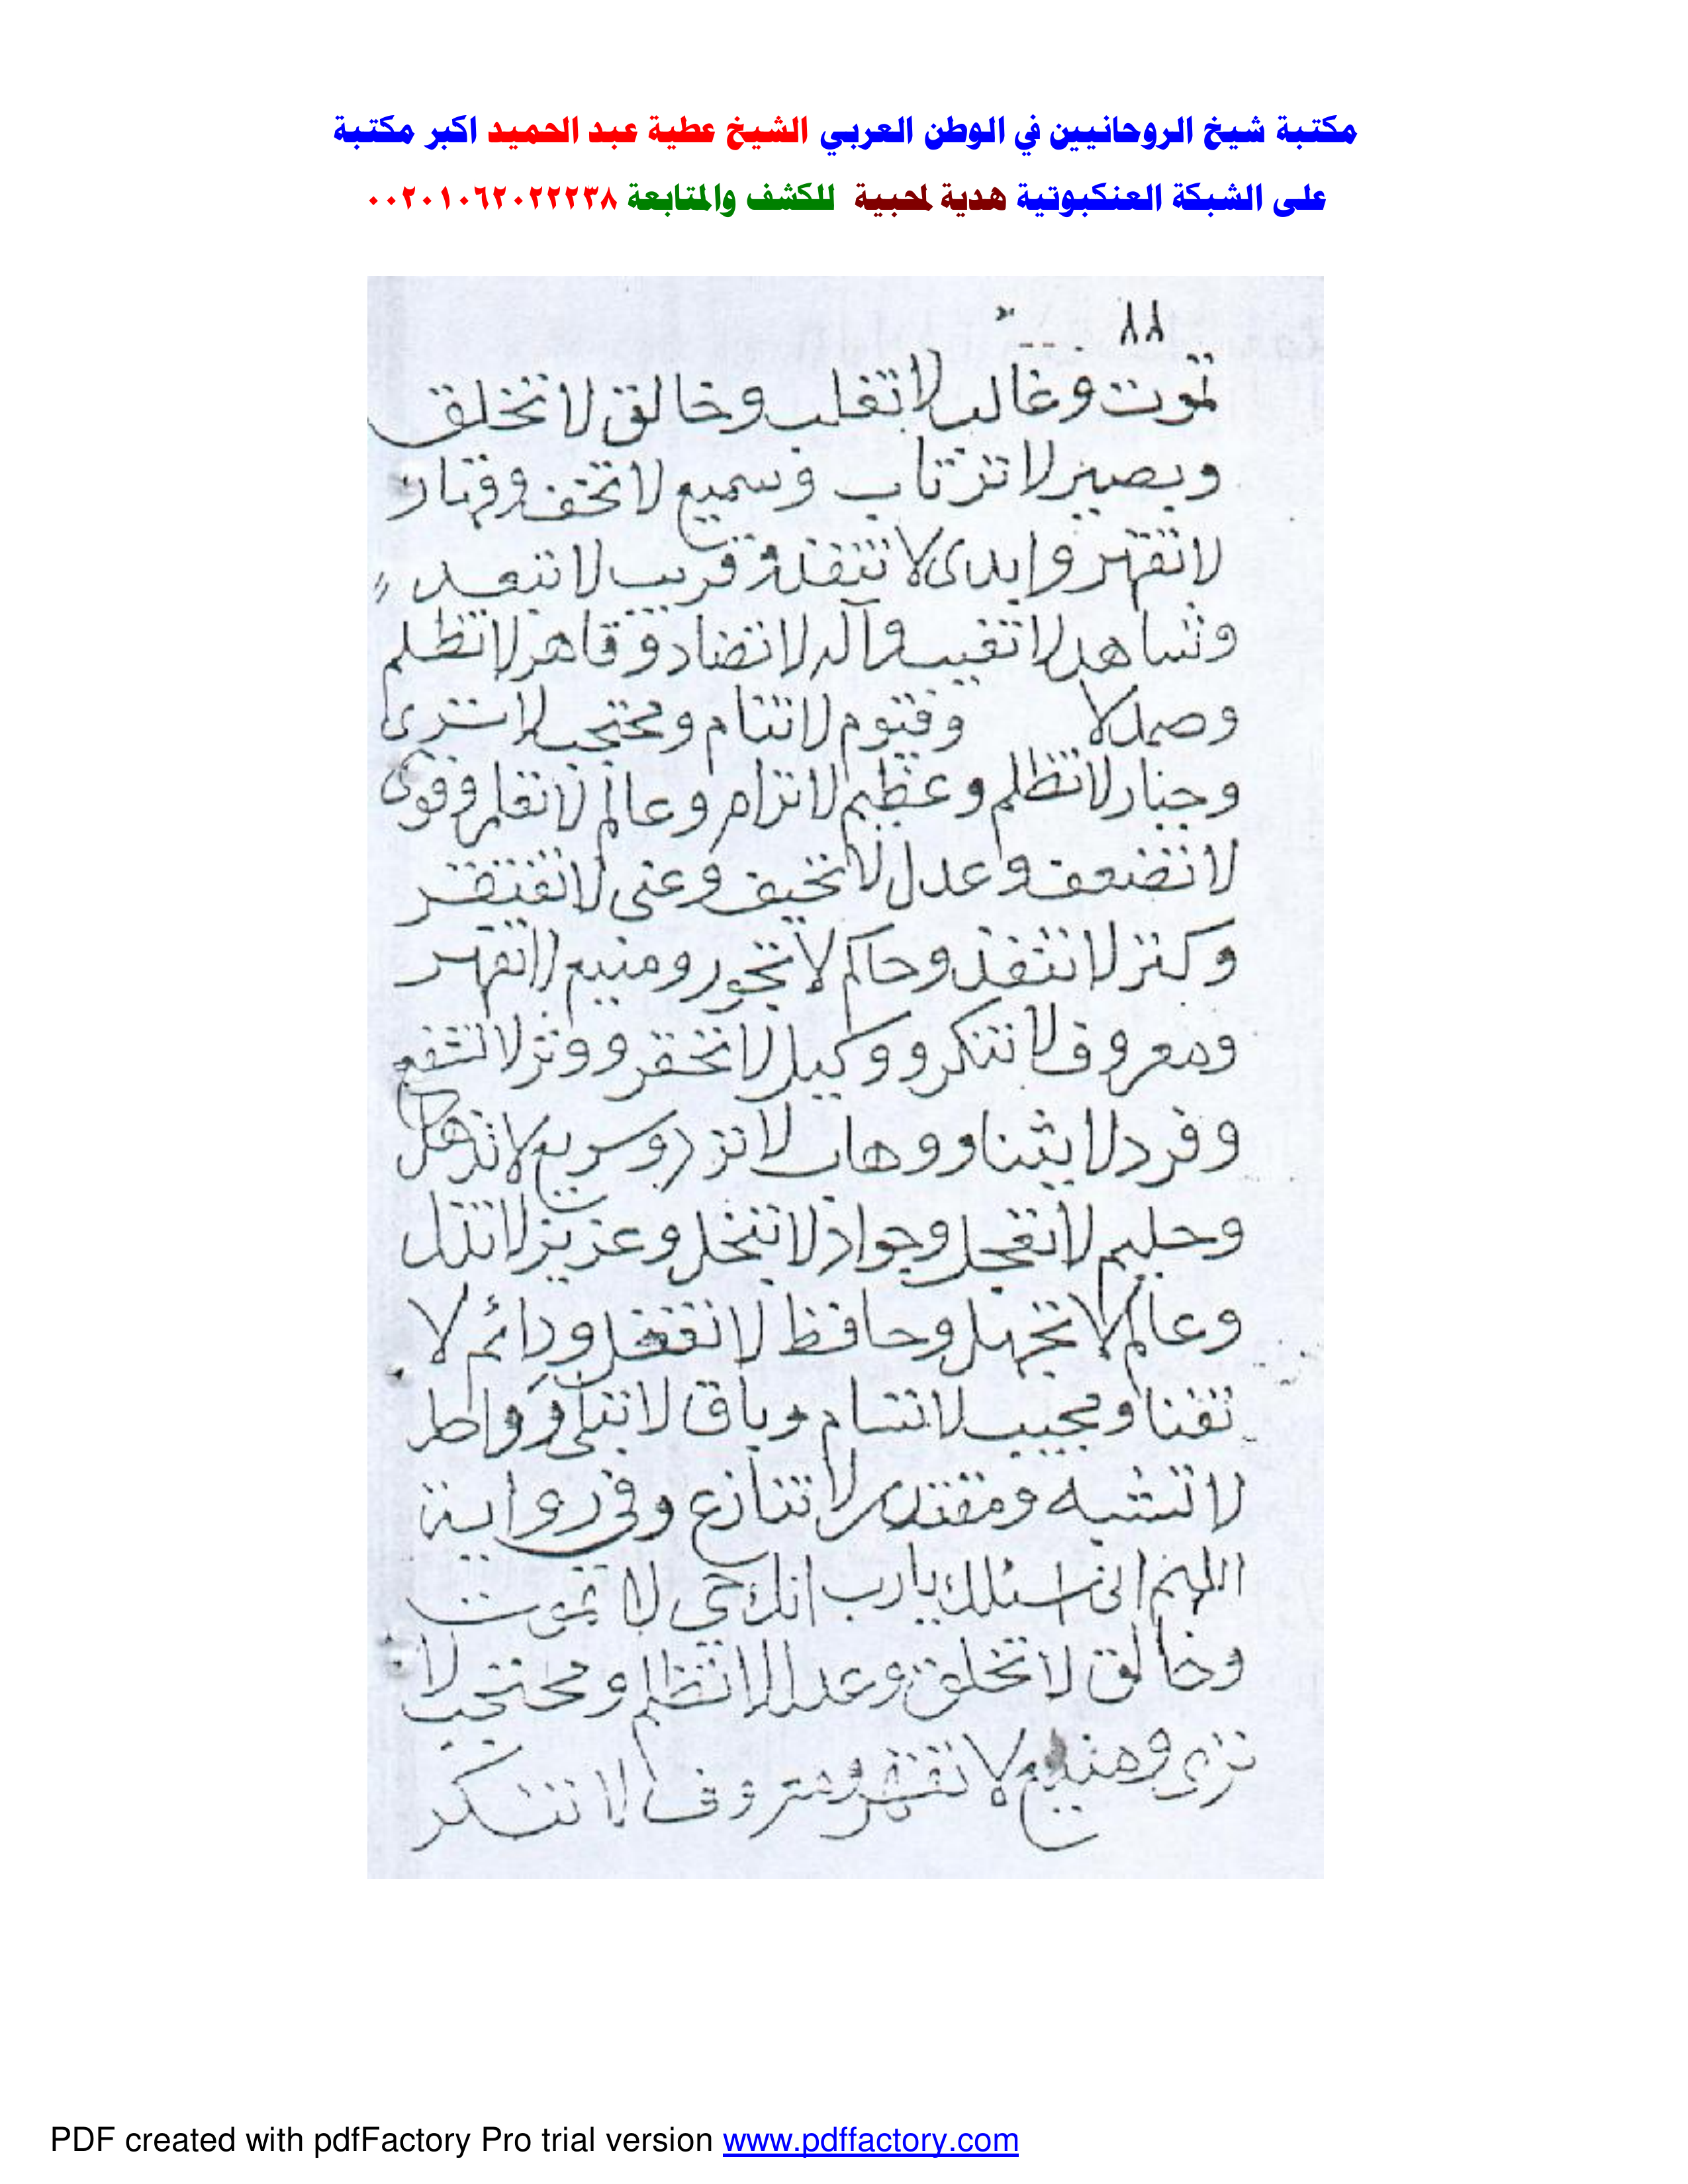 مكتبة شيخ الروحانيين في الوطن العربي الشيخ عطية عبد الحميد اكبر مكتبة
على الشبكة العنكبوتية هدية لمحبية للكشف والمتابعة ٠٠٢٠١٠٦٢٠٢٢٢٣٨
٨٨
تموت وغالب لا تغلب وخالق لا تخلق
وبصير لا ترتاب وسميع لا تخف وقهار
لا تقهر وابدى لا تنفذ وقريب لا تبعد
وشاهد لا تغيب وآله لا تضاد وقاهر لا تظلم
وصمد لا وقيوم لا تنام ومحتجب لا ترى
وجبار لا تظلم وعظيم لا ترام وعالم لا تعلم وقوى
لا تضعف وعدل لا تحيف وغنى لا تفتقر
وكنز لا تنفذ وحاكم لا تجور ومنيع لا تقهر
ومعروف لا تنكر ووكيل لا تحقر ووتر لا تشفع
وفرد لا يثنا ووهاب لا ترد وسريع لا تذهل
وحليم لا تعجل وجواد لا تبخل وعزيز لا تذل
وعالم لا تجهل وحافظ لا تغفل ودائم لا
تفنا ومجيب لا تسام وباق لا تبلى وواحد
لا تشبه ومقتدر لا تنازع وفى رواية
اللهم انى اسئلك يا رب انك حى لا تموت
وخالق لا تخلق وعدل لا تظلم ومحتجب لا
ترى ومنيع لا تقهر ومعروف لا تنكر
PDF created with pdfFactory Pro trial version www.pdffactory.com